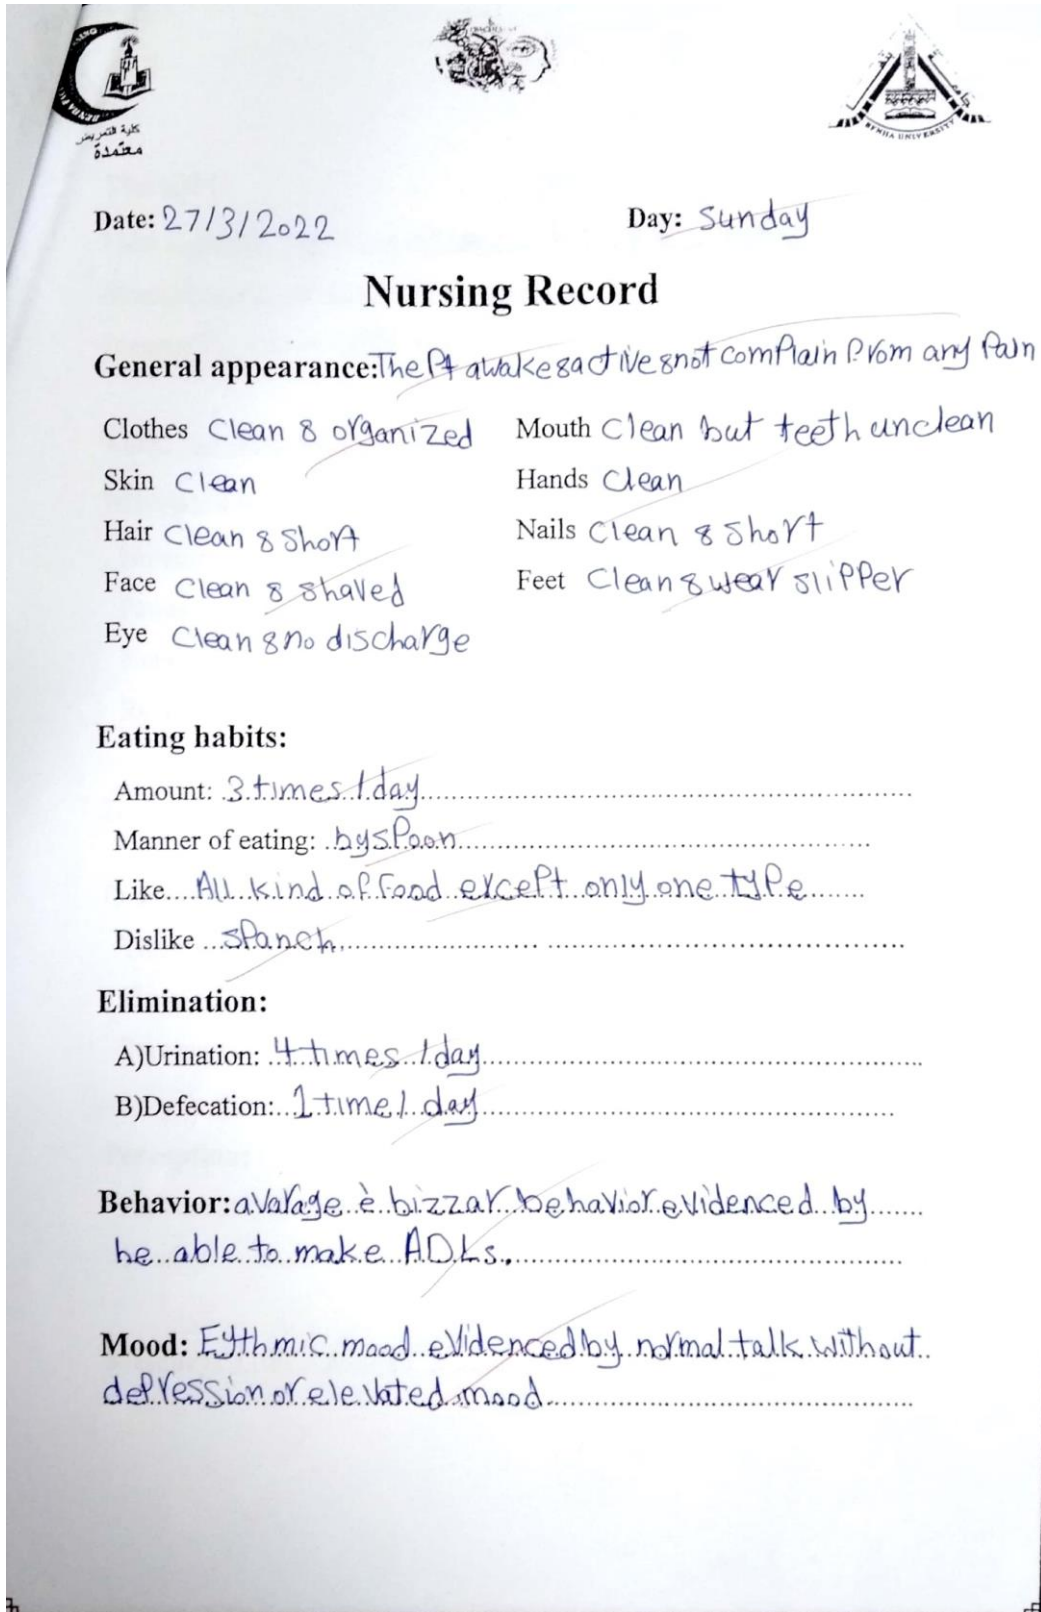 كلية التمريض
معتمدة
BENHA UNIVERSITY
Date: 27/3/2022 Day: Sunday
Nursing Record
General appearance: The Pt awake & active & not complain From any Pain
Clothes Clean & organized Mouth Clean but teeth unclean
Skin Clean Hands Clean
Hair Clean & Short Nails Clean & Short
Face Clean & shaved Feet Clean & wear slipper
Eye Clean & no discharge
Eating habits:
Amount: 3 times / day
Manner of eating: by spoon
Like.... All kind of Food except only one type
Dislike ... sPanch
Elimination:
A)Urination: 4 times / day
B)Defecation: 1 time / day
Behavior: avarage è bizzar behavior evidenced by
he able to make ADLs.
Mood: Eythmic mood evidenced by normal talk without
depression or elevated mood